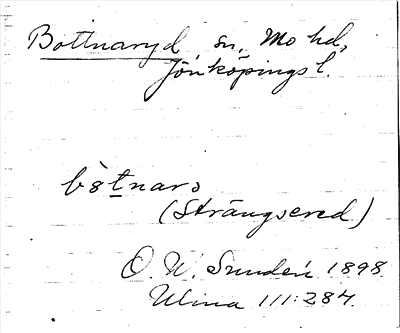 Bottnaryd sn, Mo hd,
Jönköpings l.
bòtnarə
(Strängsered)
O. W. Sundén 1898
Ulma 111:284.